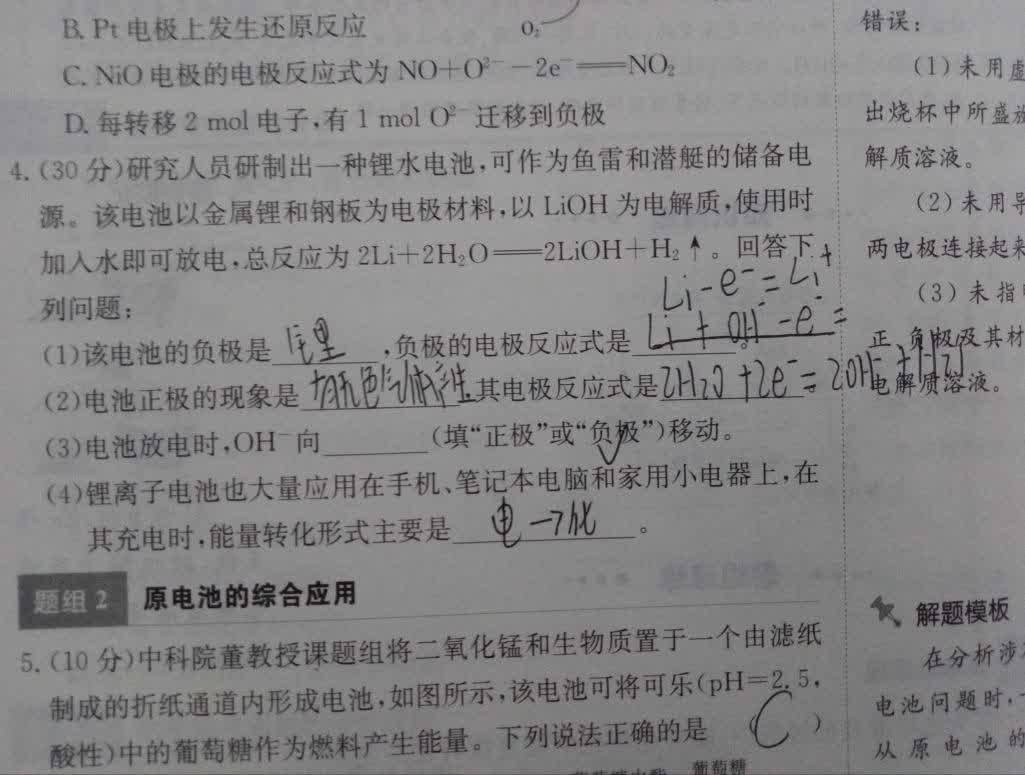 B. Pt 电极上发生还原反应
O₂⁻
C. NiO 电极的电极反应式为 NO+O²⁻－2e⁻══NO₂
D. 每转移 2 mol 电子,有 1 mol O²⁻ 迁移到负极
4. (30 分)研究人员研制出一种锂水电池,可作为鱼雷和潜艇的储备电
源。该电池以金属锂和钢板为电极材料,以 LiOH 为电解质,使用时
加入水即可放电,总反应为 2Li+2H₂O══2LiOH+H₂↑。回答下
列问题:
Li-e⁻=Li⁺
(1)该电池的负极是 锂 ,负极的电极反应式是 Li+OH⁻-e⁻= 。
(2)电池正极的现象是 有无色气体产生 其电极反应式是 2H₂O+2e⁻=2OH⁻+H₂↑
(3)电池放电时,OH⁻向________(填“正极”或“负极”)移动。
(4)锂离子电池也大量应用在手机、笔记本电脑和家用小电器上,在
其充电时,能量转化形式主要是 电→化 。
题组 2 原电池的综合应用
5. (10 分)中科院董教授课题组将二氧化锰和生物质置于一个由滤纸
制成的折纸通道内形成电池,如图所示,该电池可将可乐(pH=2.5,
酸性)中的葡萄糖作为燃料产生能量。下列说法正确的是 ( C )
葡萄糖
错误:
(1)未用
出烧杯中所盛
解质溶液。
(2)未用
两电极连接起来
(3)未指
正、负极及其材
电解质溶液。
解题模板
在分析涉
电池问题时,
从原电池的